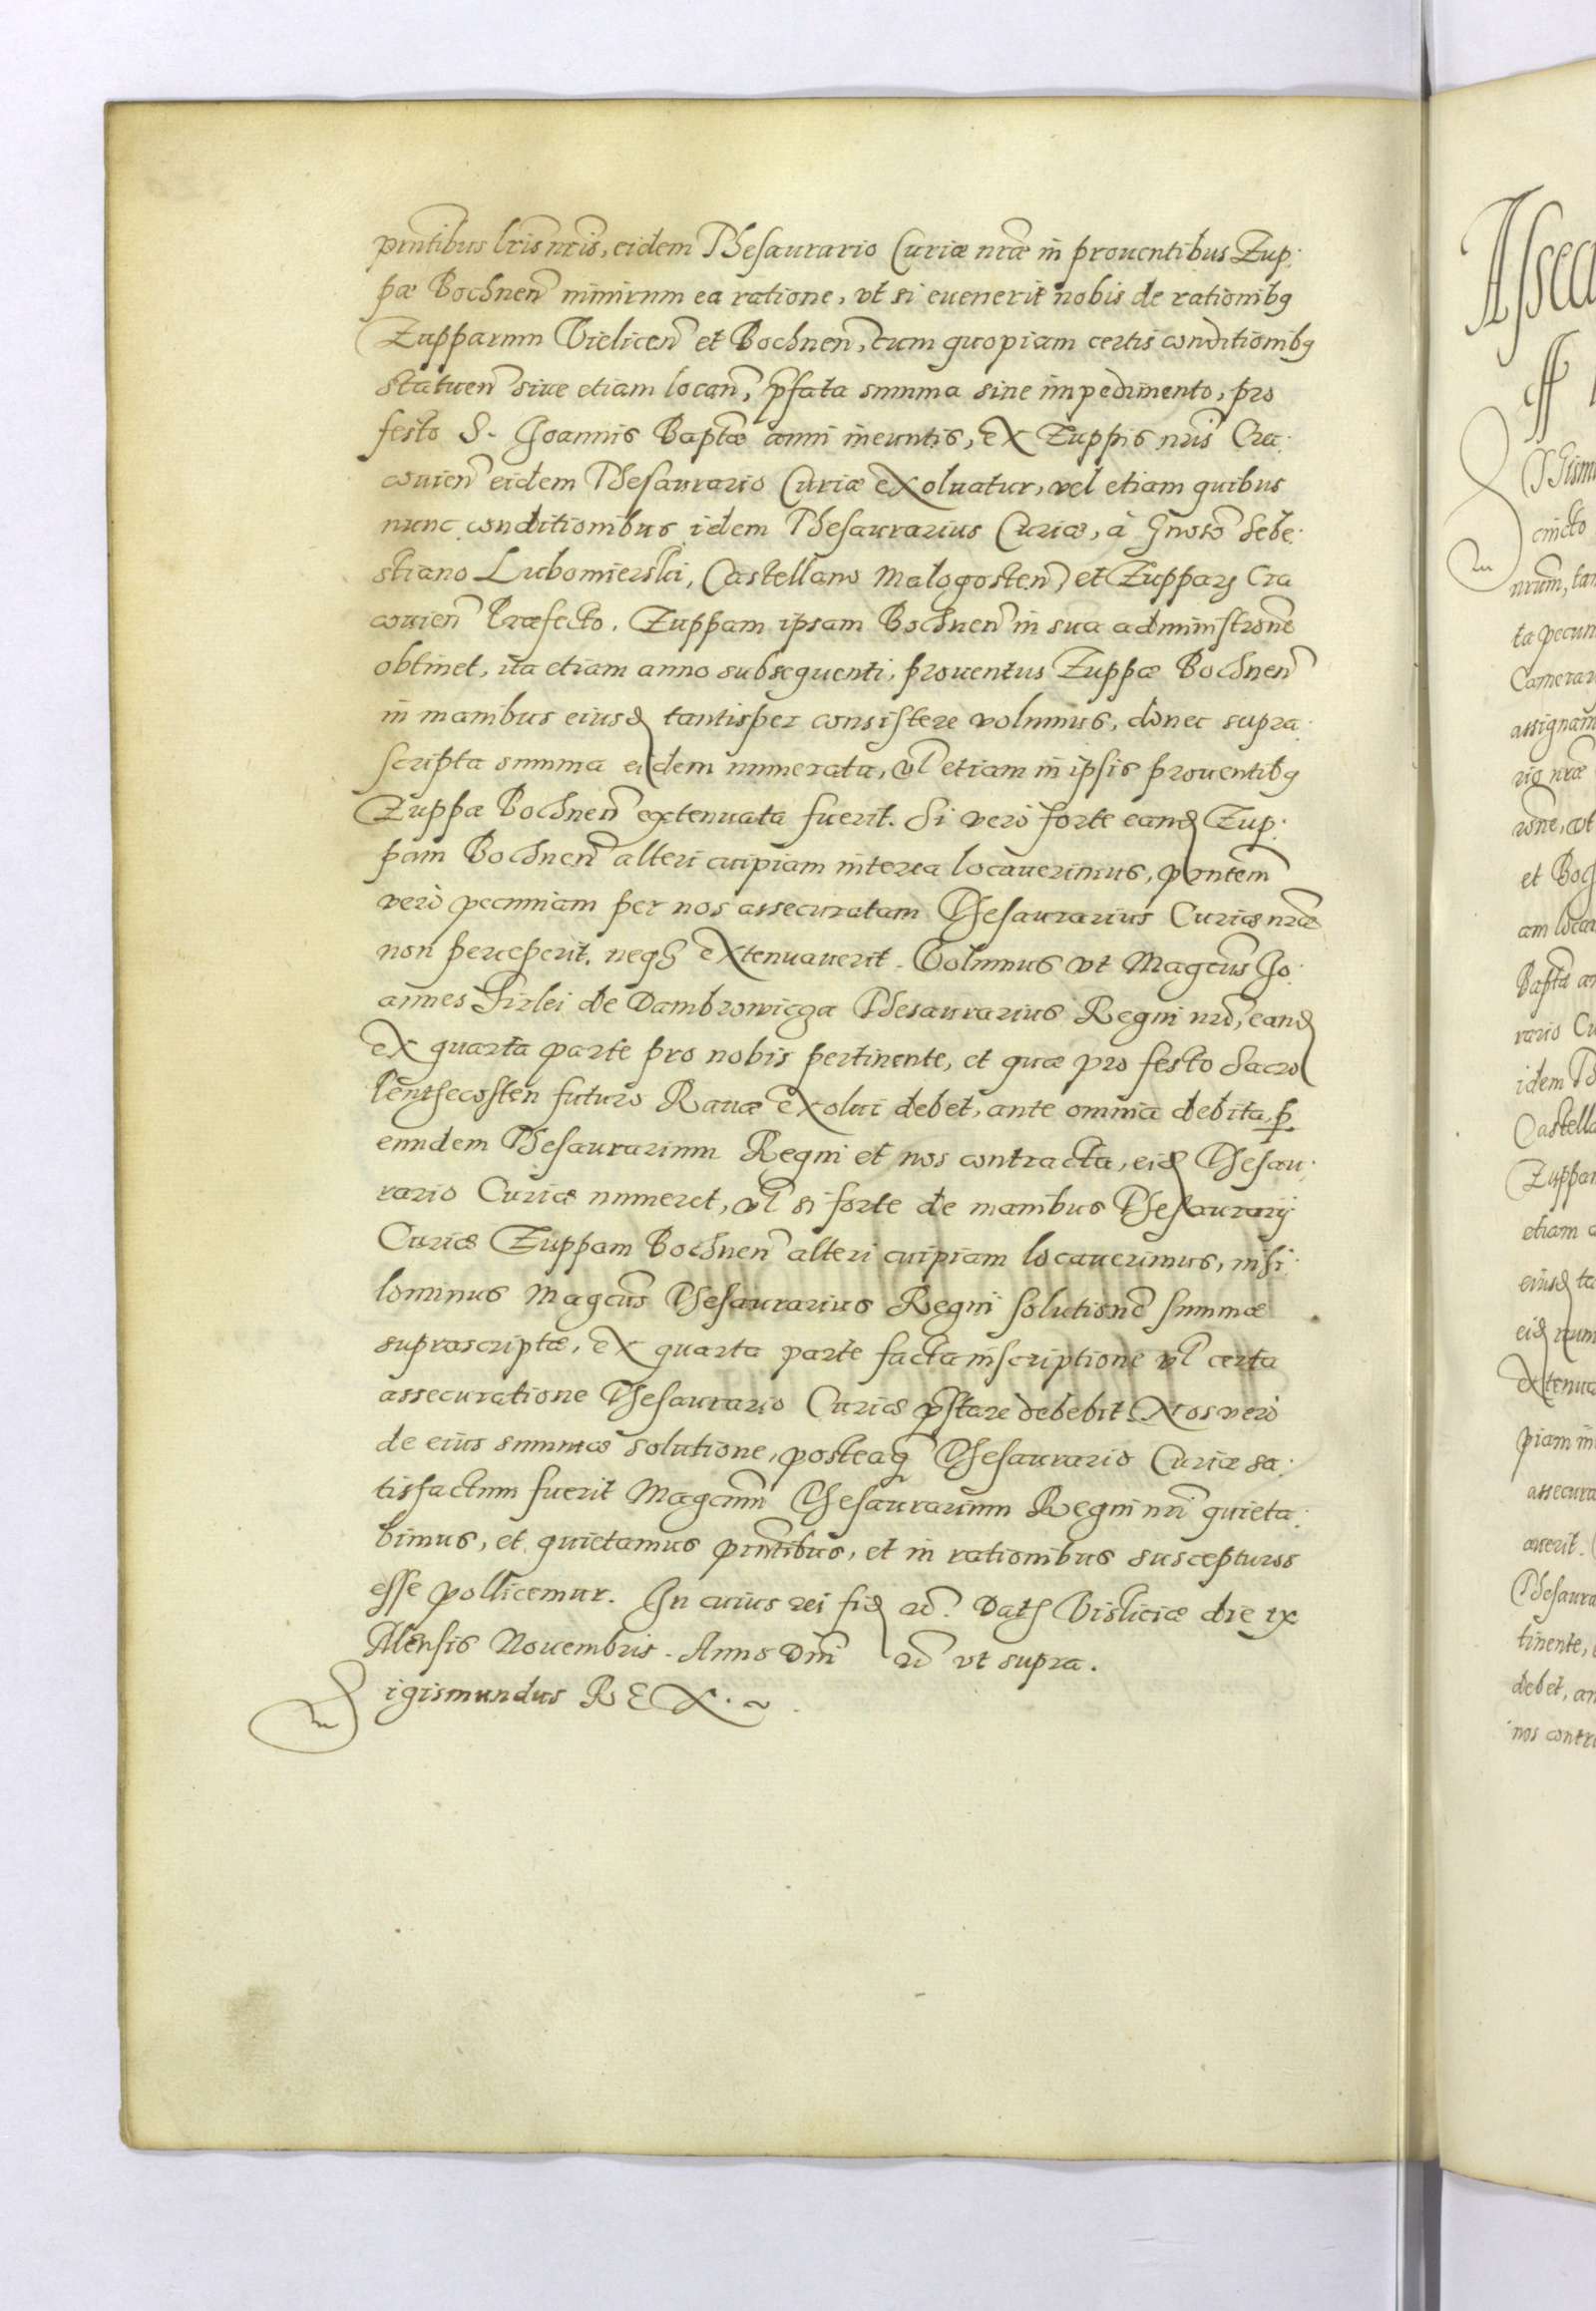 pnntibus lris nris, eidem Thesaurario Curiæ nræ in prouentibus Zup:
pæ Bochnen nimirum ea ratione, vt si euenerit nobis de rationibq
Zupparum Vielicen et Bochnen, cum quopiam certis conditionibq
statuen siue etiam locan, pfata summa sine impedimento, pro
festo S. Joannis Baptæ anni ineuntis, ex Zuppis nris Cra:
couien eidem Thesaurario Curiæ exoluatur, vel etiam quibus
nunc conditionibus idem Thesaurarius Curiæ, à Gnoso Sebe:
stiano Lubomierski, Castellano Malogosten, et Zuppaꝝ Cra
couien Præfecto. Zuppam ipsam Bochnen in sua administrone
obtinet, ita etiam anno subsequenti, prouentus Zuppæ Bochnen
in manibus eiusd tantisper consistere volumus, donec supra:
scripta summa eidem numerata, vl etiam in ipsis prouentibq
Zuppæ Bochnen extenuata fuerit. Si verò forte eand Zup:
pam Bochnen alteri cuipiam interea locauerimus, pnntem
verò pecuniam per nos assecuratam Thesaurarius Curiæ nræ
non perceperit, neqꝫ extenuauerit. Volumus vt Magcus Jo:
annes Firlei de Dambrowicza Thesaurarius Regni nri, eand
ex quarta parte pro nobis pertinente, et quæ pro festo Sacro
Penthecosten futuro Rauæ exolui debet, ante omnia debita, ꝑ
eundem Thesaurarium Regni et nos contracta, eid Thesau:
rario Curiæ numeret, vl si forte de manibus Thesaurarij
Curiæ Zuppam Bochnen alteri cuipiam locauerimus, nihi:
lominus Magcus Thesaurarius Regni solutione summæ
suprascriptæ, ex quarta parte facta inscriptione vl certa
assecuratione Thesaurario Curiæ pstare debebit. Nos verò
de eius summæ solutione, posteaq Thesaurario Curiæ sa:
tisfactum fuerit Magcum Thesaurarium Regni nri quieta:
bimus, et quietamus pnntibus, et in rationibus suscepturos
esse pollicemur. In cuius rei fid &c. Datꝫ Visliciæ die ix
Mensis Nouembris. Anno Dni &c vt supra.
Sigismundus REX.